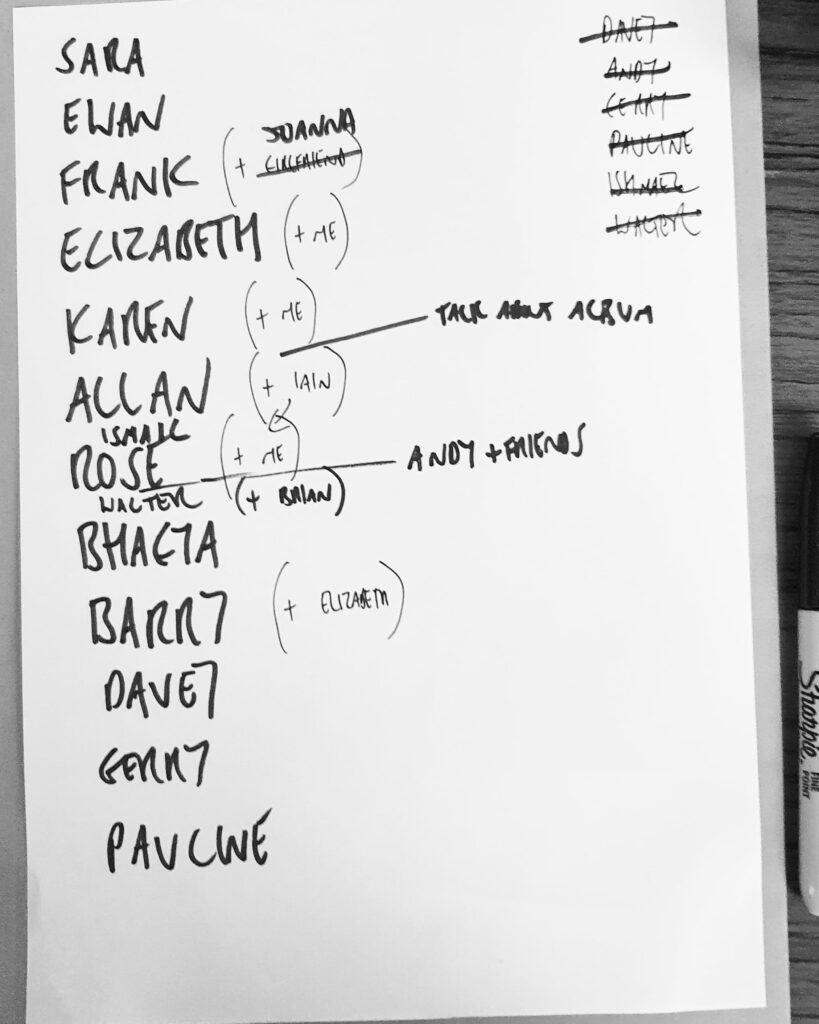 SARA
EWAN
FRANK (+ JOANNA GIRLFRIEND)
ELIZABETH (+ ME)
KAREN (+ ME)
TALK ABOUT ALBUM
ALLAN (+ IAIN)
ISMAIL
ROSE (+ ME)
ANDY + FRIENDS
WALTER (+ BRIAN)
BHAGYA
BARRY (+ ELIZABETH)
DAVEY
GERRY
PAULINE
DAVEY
ANDY
GERRY
PAULINE
ISHMAEL
WALTER
Sharpie
FINE
POINT